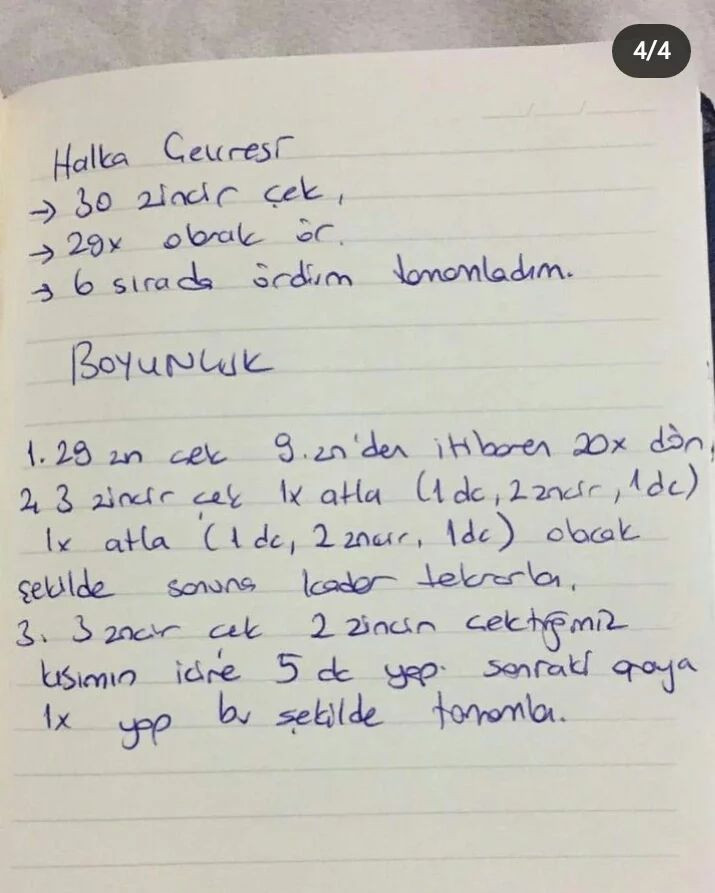 4/4
Halka Çevresi
→ 30 zincir çek,
→ 29x olarak ör.
→ 6 sırada ördüm tamamladım.
BOYUNLUK
1. 29 zn çek 9. zn'den itibaren 20x dön,
2, 3 zincir çek 1x atla (1 dc, 2 zncir, 1 dc)
1x atla (1 dc, 2 zncir, 1dc) olacak
şekilde sonuna kadar tekrarla,
3. 3 zncir çek 2 zincin çektiğimiz
kısımın içine 5 dc yap. sonraki araya
1x yap bu şekilde tamamla.